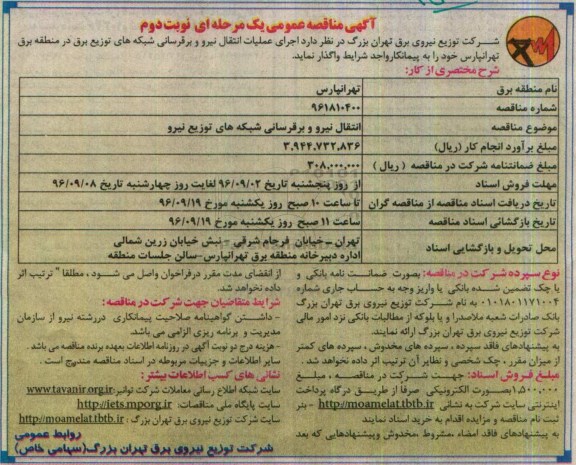 آگهی مناقصه عمومی یک مرحله ای نوبت دوم
شرکت توزیع نیروی برق تهران بزرگ در نظر دارد اجرای عملیات انتقال نیرو و برقرسانی شبکه های توزیع برق در منطقه برق
تهرانپارس خود را به پیمانکارواجد شرایط واگذار نماید.
شرح مختصری از کار:
نام منطقه برق تهرانپارس
شماره مناقصه ۹۶۱۸۱۰۴۰۰
موضوع مناقصه انتقال نیرو و برقرسانی شبکه های توزیع نیرو
مبلغ برآورد انجام کار (ریال) ۳.۹۴۴.۷۳۲.۸۳۶
مبلغ ضمانتنامه شرکت در مناقصه ( ریال ) ۳۰۸.۰۰۰.۰۰۰
مهلت فروش اسناد از روز پنجشنبه تاریخ ۹۶/۰۹/۰۲ لغایت روز چهارشنبه تاریخ ۹۶/۰۹/۰۸
تاریخ دریافت اسناد مناقصه از مناقصه گران تا ساعت ۱۰ صبح روز یکشنبه مورخ ۹۶/۰۹/۱۹
تاریخ بازگشائی اسناد مناقصه ساعت ۱۱ صبح روز یکشنبه مورخ ۹۶/۰۹/۱۹
محل تحویل و بازگشایی اسناد تهران – خیابان فرجام شرقی – نبش خیابان زرین شمالی
اداره دبیرخانه منطقه برق تهرانپارس-سالن جلسات منطقه
نوع سپرده شرکت در مناقصه: بصورت ضمانت نامه بانکی و
یا چک تضمین شده بانکی یا واریز وجه به حساب جاری شماره
۰۱۰۱۸۰۱۱۷۱۰۰۴ به نام شرکت توزیع نیروی برق تهران بزرگ
بانک صادرات شعبه ملاصدرا و یا بلوکه از مطالبات بانکی نزد امور مالی
شرکت توزیع نیروی برق تهران بزرگ ارائه نمایند.
به پیشنهادهای فاقد سپرده ، سپرده های مخدوش ، سپرده های کمتر
از میزان مقرر ، چک شخصی و نظایر آن ترتیب اثر داده نخواهد شد .
مبلغ فروش اسناد: جهت شرکت در مناقصه ، مبلغ
۱,۵۰۰,۰۰۰بصورت الکترونیکی صرفاً از طریق درگاه پرداخت
اینترنتی سایت شرکت به نشانی http://moamelat.tbtb.ir - بتر
ثبت نام مناقصه و مزایده اقدام به خرید اسناد نمایند
به پیشنهادهای فاقد امضاء ،مشروط ،مخدوش وپیشنهادهایی که بعد
از انقضای مدت مقرر درفراخوان واصل می شود ، مطلقا" ترتیب اثر
داده نخواهد شد.
شرایط متقاضیان جهت شرکت در مناقصه:
- داشتن گواهینامه صلاحیت پیمانکاری دررشته نیرو از سازمان
مدیریت و برنامه ریزی الزامی می باشد.
- هزینه درج دو نوبت آگهی در روزنامه اطلاعات بعهده برنده مناقصه می باشد .
سایر اطلاعات و جزییات مربوطه در اسناد مناقصه مندرج است .
نشانی های کسب اطلاعات بیشتر :
سایت شبکه اطلاع رسانی معاملات شرکت توانیر:www.tavanir.org.ir
سایت پایگاه ملی مناقصات: http://iets.mporg.ir
سایت شرکت توزیع نیروی برق تهران بزرگ : http://moamelat.tbtb.ir
روابط عمومی
شرکت توزیع نیروی برق تهران بزرگ(سهامی خاص)